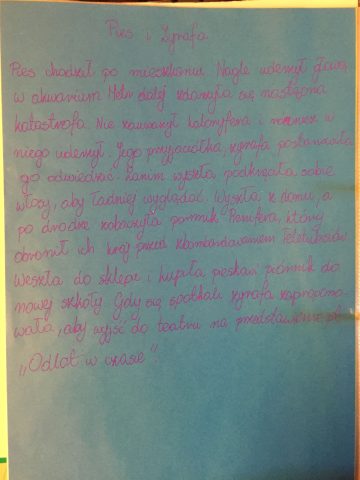 Pies i żyrafa
Pies chodził po mieszkaniu. Nagle uderzył głową
w akwarium. Metr dalej zdarzyła się następna
katastrofa. Nie zauważył kaloryfera i również w
niego uderzył. Jego przyjaciółka, żyrafa postanowiła
go odwiedzić. Zanim wyszła podkręcała sobie
włosy, aby ładniej wyglądać. Wyszła z domu, a
po drodze zobaczyła pomnik który
obronił ich kraj przed zbombardowaniem Teletubisiów
Weszła do sklepu i kupiła pieskowi piórnik do
nowej szkoły. Gdy się spotkali żyrafa zapropono-
wała, aby wyjść do teatru na przedstawienie pt.
„Odlot w czasie".